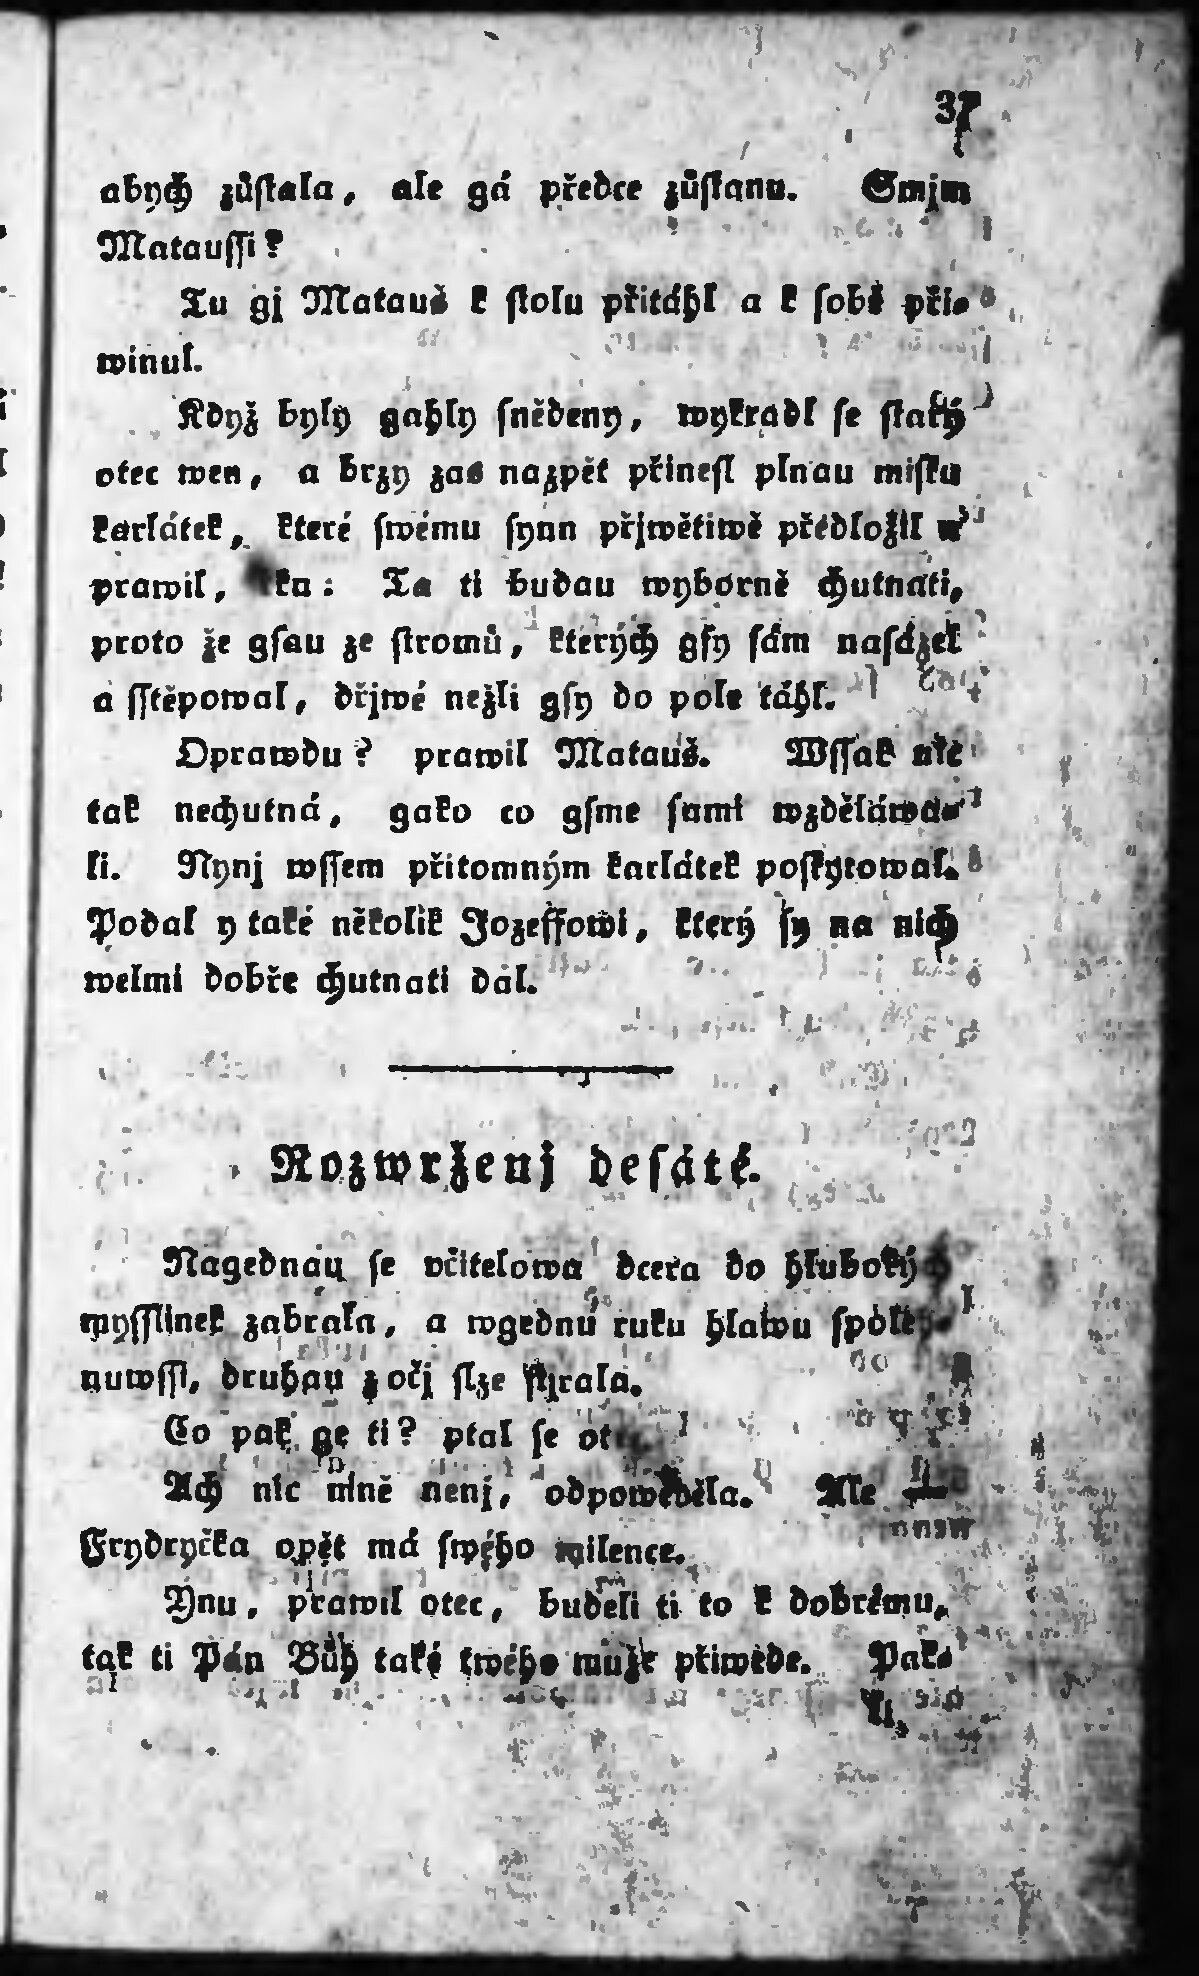 37
abych zůſtala, ale gá předce zůſtanu. Smjm
Matauſſi?
Tu gj Matauš k ſtolu přitáhl a k ſobě při-
winul.
Když byly gahly ſnědeny, wykradl ſe ſtarý
otec wen, a brzy zas nazpět přineſl plnau miſku
karlátek, které ſwému ſynu přjwětiwě předložil a
prawil, řka: Ta ti budau wyborně chutnati,
proto že gſau ze ſtromů, kterých gſy ſám naſázel
a ſſtěpowal, dřjwé nežli gſy do pole táhl.
Oprawdu? prawil Matauš. Wſſak nic
tak nechutná, gako co gſme ſami wzděláwa-
li. Nynj wſſem přitomným karlátek poſkytowal.
Podal y také několik Jozeffowi, který ſy na nich
welmi dobře chutnati dal.
Rozwrženj deſáté.
Nagednáu ſe včitelowa dcera do hlubokých
myſſlinek zabrala, a wgednu ruku hlawu
nuwſſi, druhau z očj ſlze ſtjrala.
Co pak ge ti? ptal ſe
Ach nic mině nenj, odpowěděla. Ale
Frydryčka opět má ſwého milence.
Ynu, prawil otec, budeli ti to k dobrému,
tak ti Pán Bůh také twého muže přiwede. Pak-